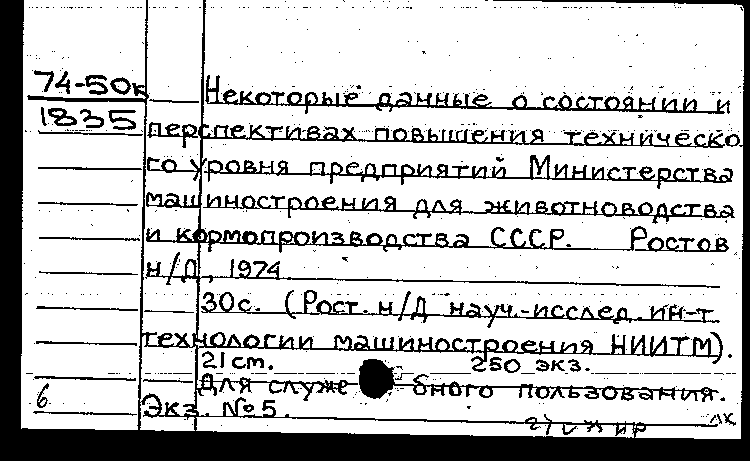 74-50к
1835
Некоторые данные о состоянии и
перспективах повышения техническо
го уровня предприятий Министерства
машиностроения для животноводства
и кормопроизводства СССР. Ростов
н/Д, 1974
30с. (Рост. н/Д науч.-исслед. ин-т
технологии машиностроения НИИТМ).
21 cm. 250 экз.
Для служебного пользования.
6
Экз. №5.